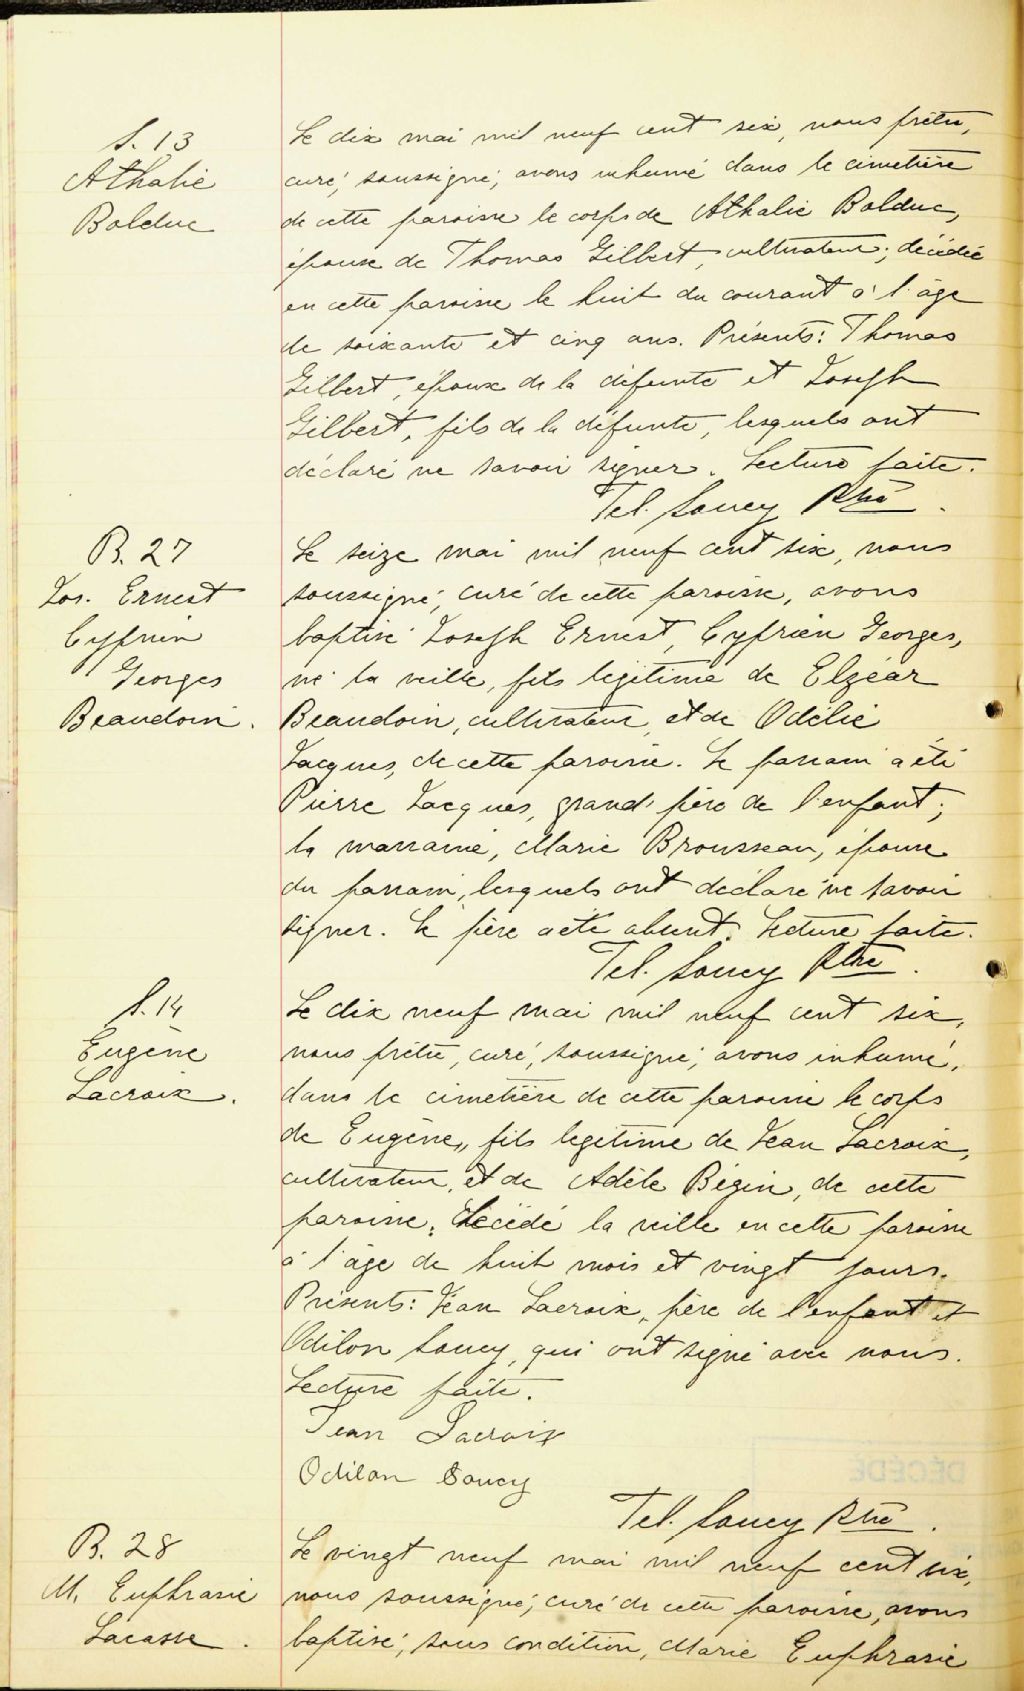 S. 13
Athalie
Bolduc
Le dix mai mil neuf cent six, nous prêtre,
curé, soussigné, avons inhumé dans le cimetière
de cette paroisse le corps de Athalie Bolduc,
épouse de Thomas Gilbert, cultivateur; décédée
en cette paroisse le huit du courant à l'âge
de soixante et cinq ans. Présents: Thomas
Gilbert, époux de la défunte et Joseph
Gilbert, fils de la défunte, lesquels ont
déclaré ne savoir signer. Lecture faite.
Tel. Soucy Ptre.
B. 27
Jos. Ernest
Cyprien
Georges
Beaudoin.
Le seize mai mil neuf cent six, nous
soussigné, curé de cette paroisse, avons
baptisé Joseph Ernest, Cyprien Georges,
né la veille, fils légitime de Elzéar
Beaudoin, cultivateur, et de Odélie
Jacques, de cette paroisse. Le parrain a été
Pierre Jacques, grand'père de l'enfant;
la marraine, Marie Brousseau, épouse
du parrain, lesquels ont déclaré ne savoir
signer. Le père a été absent. Lecture faite.
Tel. Soucy Ptre.
S. 14
Eugène
Lacroix.
Le dix neuf mai mil neuf cent six,
nous prêtre, curé, soussigné, avons inhumé,
dans le cimetière de cette paroisse le corps
de Eugène, fils légitime de Jean Lacroix,
cultivateur, et de Adèle Bégin, de cette
paroisse, décédé la veille en cette paroisse
à l'âge de huit mois et vingt jours.
Présents: Jean Lacroix, père de l'enfant et
Odilon Soucy, qui ont signé avec nous.
Lecture faite.
Jean Lacroix
Odilon Soucy
DÉCÉDÉ
Tel. Soucy Ptre.
B. 28
M. Euphrasie
Lacasse.
Le vingt neuf mai mil neuf cent six,
nous soussigné, curé de cette paroisse, avons
baptisé, sous condition, Marie Euphrasie